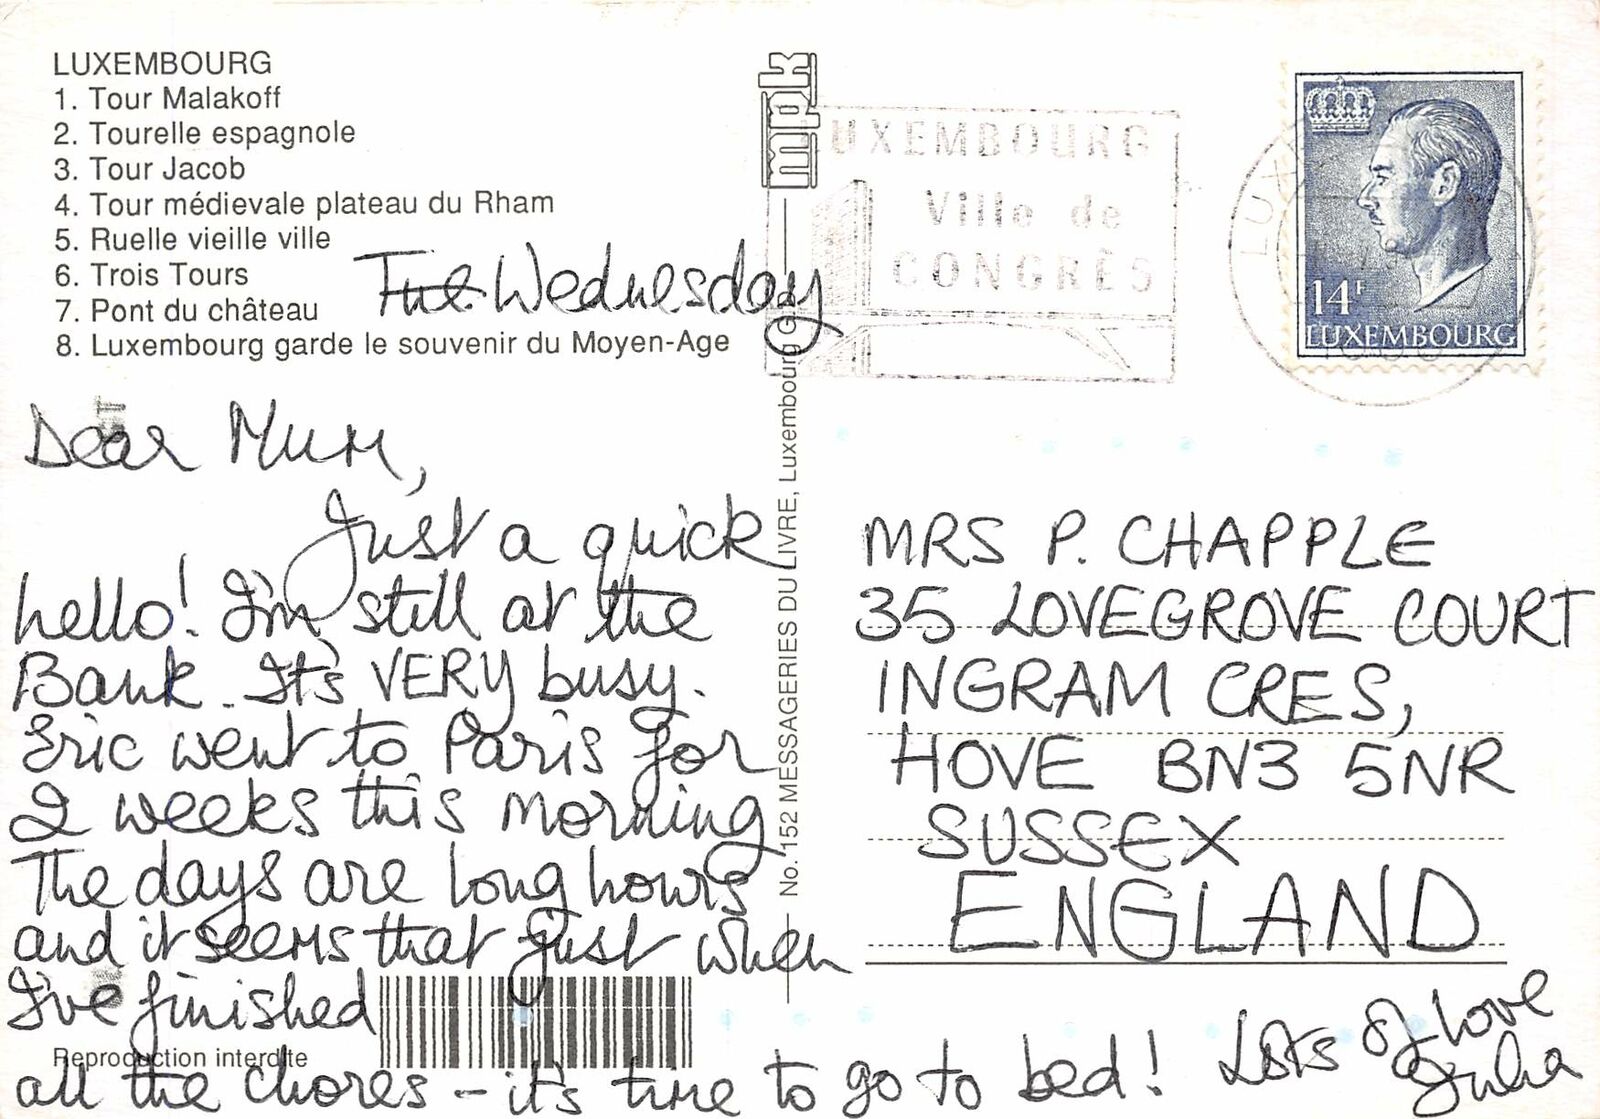 LUXEMBOURG
1. Tour Malakoff
2. Tourelle espagnole
3. Tour Jacob
4. Tour médievale plateau du Rham
5. Ruelle vieille ville
6. Trois Tours
7. Pont du château
8. Luxembourg garde le souvenir du Moyen-Age
Tue. Wednesday
Dear Mum,
Just a quick
hello! I'm still at the
Bank. It's VERY busy.
Eric went to Paris for
2 weeks this morning
The days are long hours
and it seems that just when
I've finished
Reproduction interdite
all the chores – it's time to go to bed!
Lots of love
Julia
mpk
No. 152 MESSAGERIES DU LIVRE, Luxembourg
LUXEMBOURG
Ville de
CONGRÈS
14F
LUXEMBOURG
MRS P. CHAPPLE
35 LOVEGROVE COURT
INGRAM CRES,
HOVE BN3 5NR
SUSSEX
ENGLAND